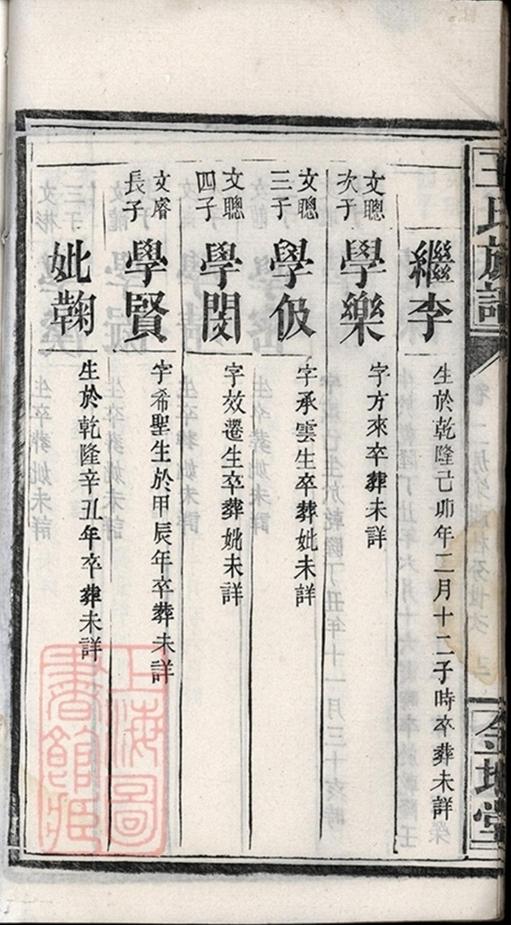 王氏族譜
金堂
繼李
生於乾隆己卯年二月十二子時卒葬未詳
文聰次子
學樂
字方來卒葬未詳
文聰三子
學伋
字承雲生卒葬妣未詳
文聰四子
學閔
字效遷生卒葬妣未詳
文睿長子
學賢
字希聖生於甲辰年卒葬未詳
妣鞠
生於乾隆辛丑年卒葬未詳
上海圖書館藏